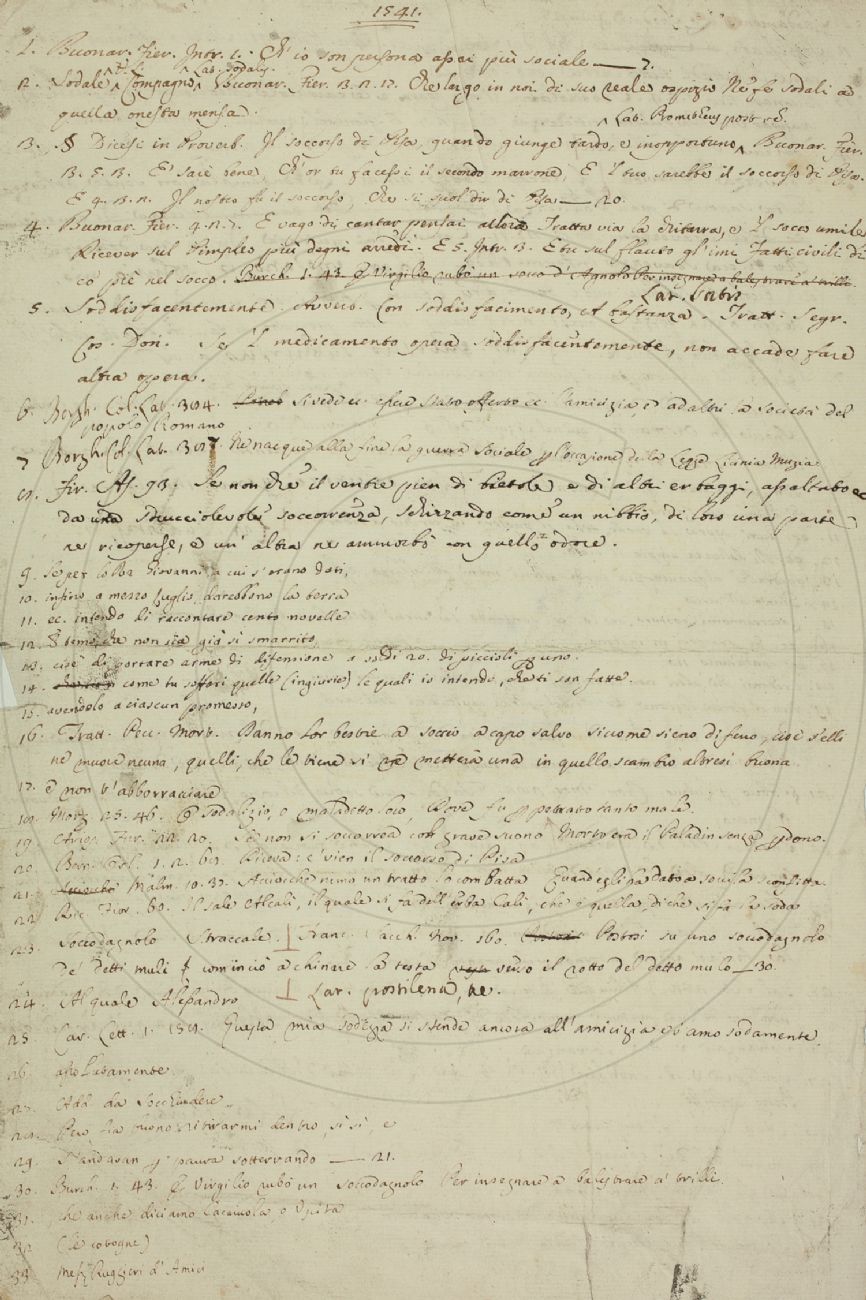 1541.
1. Buonar. Fier. Intr. 1. Ch' io son persona assai più sociale — 7.
H. S. Lat. Sodalis.
2. Sodale Compagno Buonar. Fier. Che largo in noi di suo reale ospizio Ne fe sodali a
quella onesta mensa.
Lat. Prometheus post
3. § Dicesi in Proverb. Il soccorso di Pisa, quando giunge tardo, e inopportuno Buonar. Fier.
E' sare' bene, Ch' or tu facessi il secondo marrone, E 'l tuo sarebbe il soccorso di Pisa.
E 4. Il nostro fu il soccorso, Che si suol dir di Pisa — 20.
4. Buonar. Fier. 4. E vago di cantar pensai allora Tratta via la chitarra, e 'l socco umile
Ricever sul più degni arredi. E 5. Intr. E tu sul flauto gl' imi Fatti civili di
co piè nel socco. Burch. 1. 43. E Virgilio rubò un soccod'Agnolo Per insegnare a balestrare a' trilli.
Lat.
5. Soddisfacentemente. Avverb. Con soddisfacimento, A bastanza. Tratt. Segr.
Cos. Don. Se 'l medicamento opera soddisfacentemente, non accade fare
altra opera.
6. Borgh. Col. Lat. si vede ec. esser stato offerto ec. l'amicizia, e ad altri la società del
popolo Romano
7. Borgh. Col. Lat. Ne nacque alla fine la guerra Sociale p l'occasione della Legge Licinia Muzia.
Fir. As. 93. Se non che il ventre pien di bietole e di altri erbaggi, assaltato ec
da sdrucciolevole soccorrenza, schizzando come un nibbio, di loro una parte
ne ricoperse, e un' altra ne ammorbò con quello odore.
9. Se per lo Re Giovanni a cui s' erano dati,
10. infino a mezzo luglio darebbono la terra
11. ec. intendo di raccontare cento novelle
12. E temo, che non sia già sì smarrito,
13. cioè di portare arme di difensione a soldi 20. di piccioli p uno.
14. come tu soffori quelle (ingiurie) le quali io intendo, che ti son fatte.
15. avendolo a ciascun promesso,
16. Tratt. Pecc. Mort. Danno lor bestie a soccio a capo salvo siccome sieno di ferro, cioè s'elli
ne muore neuna, quelli, che le tiene vi ne metterà una in quello scambio altresì buona.
17. e non v'abborracciare
Morg. 25. 46. O Sodalizio, o maladetto loco, Dove fu p petrato tanto male.
19. Arios. Fur. 20. Se non si soccorrea coll grave suono Morto era il Paladin senza pdono.
20. Bern. Orl. 1. 2. 60. Riceva: e' vien il soccorso di Pisa
21. Malm. 10. 37. Acciocchè nemo un tratto la combatta Quand' egli ha data a socc sconfitta.
22. Ric. Fior. 60. Il sale Alcali, il quale si fa dell' erba Cali, che è quella, di che si fa la soda
23. Soccodagnolo Straccale. ⊥ Franc. Sacch. Nov. 160. Postosi su uno soccodagnolo
De' detti muli cominciò a chinare la testa verso il rotto del detto mulo — 30.
24. Al quale Alessandro ⊥ Lat. postilena, ae.
25. Car. Lett. 1. Questa mia sodezza si stende ancora all' amicizia, et amo sodamente.
26. assolutamente.
27. Add. da Socchiudere.
Però fia buono ritirarmi dentro, sì sì, e
29. N'andavan p paura sotterrando — 21.
30. Burch. 1. 43. E Virgilio rubò un soccodagnolo Per insegnare a balestrare a' trilli.
31. che anche diciamo
32. (le cotogne)
33. Mess. Ruggieri d' Amici